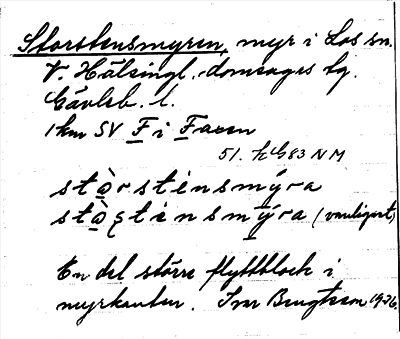 Storstensmyren, myr i Los sn.
V. Hälsingl. domsagas tg.
Gävleb. l.
1 km SV F i Faxen
51. 83 NM
stọ̀rstensmýra
stọ̀ʂtensmýra (vanligast)
En del större flyttblock i
myrkanten. Ivar Bengtsson 1926.